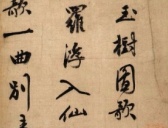 玉樹圍歌
羅浮入仙
歌一曲別